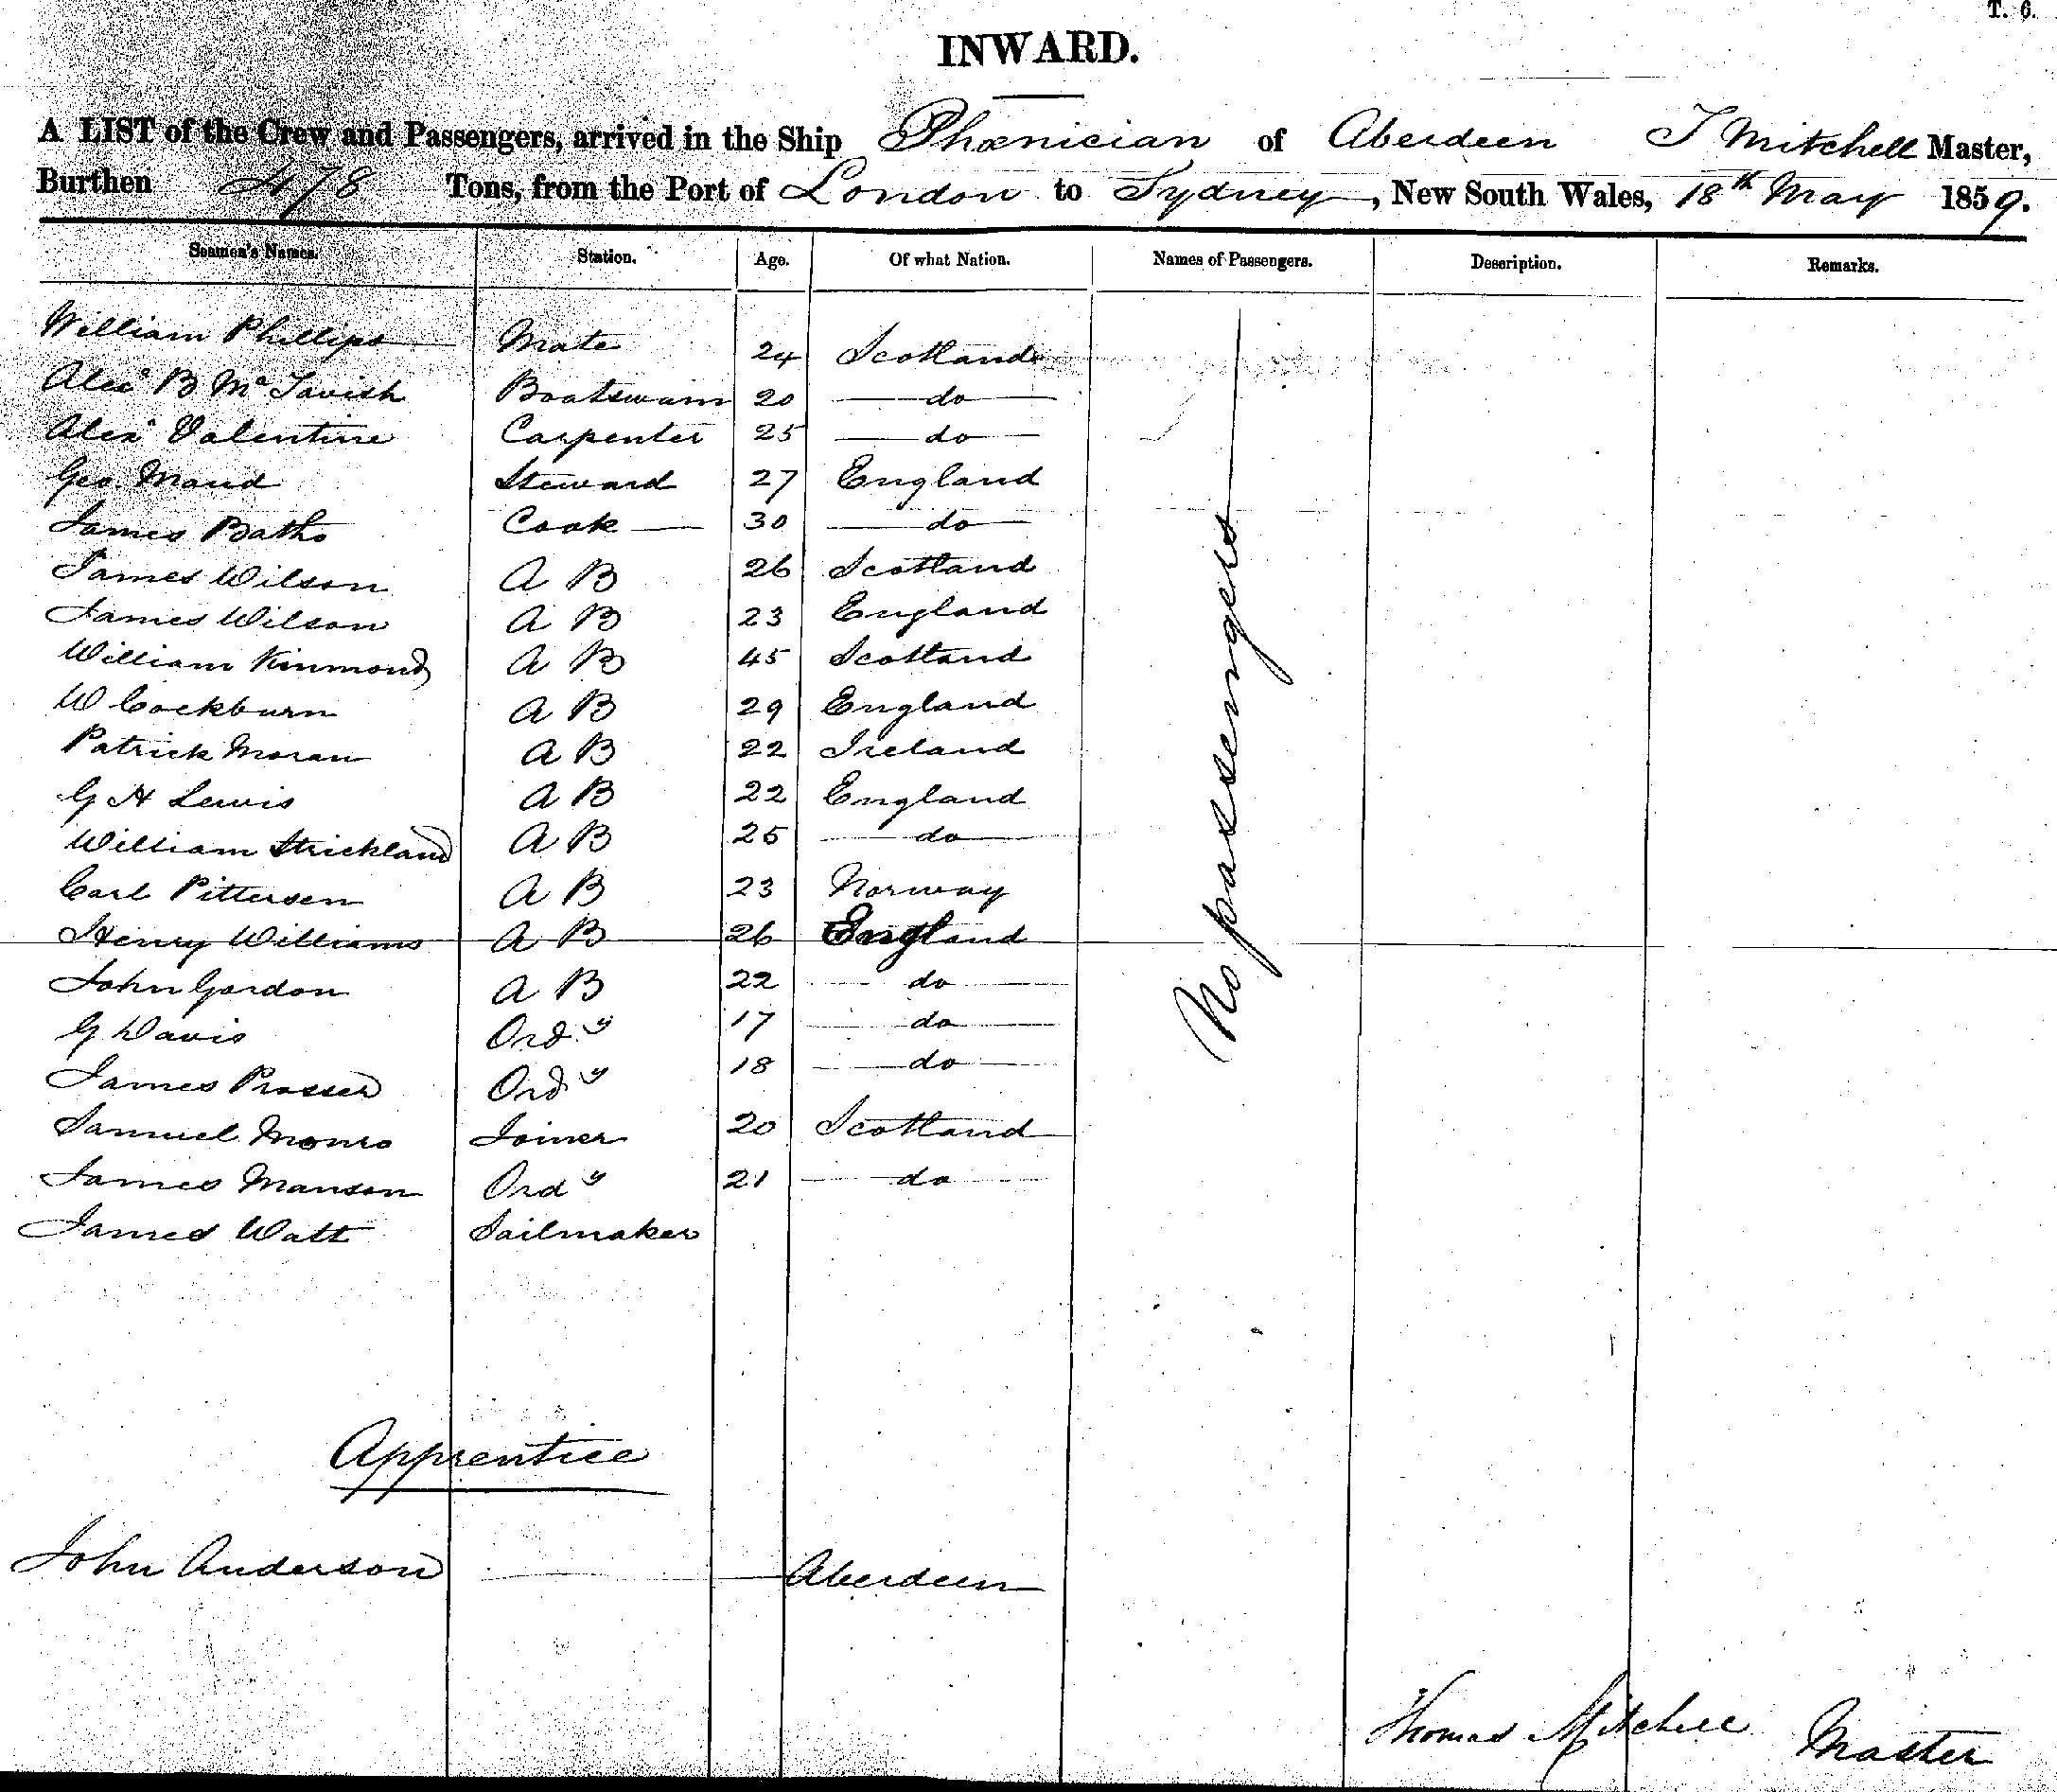 T. 6.
INWARD.
A LIST of the Crew and Passengers, arrived in the Ship Phœnician of Aberdeen T Mitchell Master,
Burthen 478 Tons, from the Port of London to Sydney, New South Wales, 18th May 1859.
Seamen's Names. Station. Age. Of what Nation. Names of Passengers. Description. Remarks.
William Phillips Mate 24 Scotland
Alexr B McTavish Boatswain 20 do
Alexr Valentine Carpenter 25 do
Geo Maud Steward 27 England
James Batho Cook 30 do
James Wilson A B 26 Scotland
James Wilson A B 23 England
William Kinmond A B 45 Scotland
W Cockburn A B 29 England
Patrick Moran A B 22 Ireland
G H Lewis A B 22 England
William Strickland A B 25 do
Carl Pittersen A B 23 Norway
Henry Williams A B 26 England
John Gordon A B 22 do
G Davis Ordy 17 do
James Prosser Ordy 18 do
Samuel Monro Joiner 20 Scotland
James Manson Ordy 21 do
James Watt Sailmaker
No passengers
Apprentice
John Anderson Aberdeen
Thomas Mitchell Master